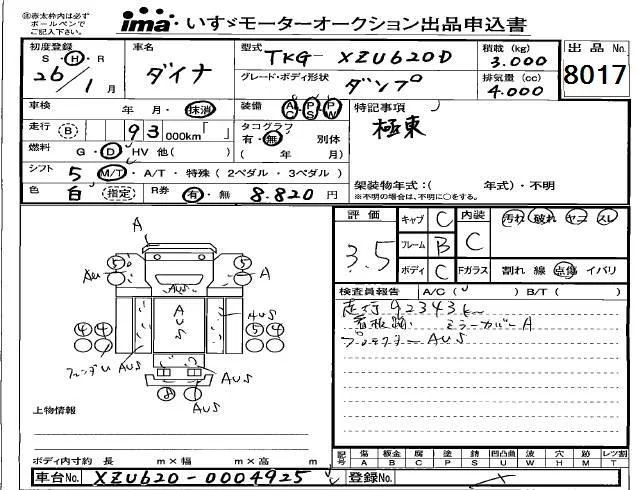 ㊟赤太枠内は必ず
ボールペンで
ご記入下さい。
ima いすゞモーターオークション出品申込書
初度登録 S・H・R 26年 1月
車名 ダイナ
型式 TKG- XZU620D
積載 (kg) 3.000
出品 No. 8017
グレード・ボディ形状 ダンプ
排気量 (cc) 4.000
車検 年 月・抹消
装備 AC PS PW
特記事項
極東
走行 B 93 000km「 」
タコグラフ 有・無 別体 ( 年 月)
燃料 G・D・HV 他( )
シフト 5 M/T・A/T・特殊 (2ペダル・3ペダル)
架装物年式:( 年式)・不明
※不明の場合は、不明に○をする。
色 白 指定 R券 有・無 8.820 円
評価 3.5
キャブ C 内装 C 汚れ 破れ ヤニ スレ
フレーム B
ボディ C Fガラス 割れ 線 点傷 イバリ
検査員報告 A/C( ) B/T( )
走行 92343km
看板跡 ミラーカバーA
プロテクター AUS
A
5 5
AW AUS A
AUS
AUS
4 4 5 4
フェンダー AUS
AUS
8
AUS
上物情報
ボディ内寸約 長 m×幅 m×高 m
記号 傷 A 板金 B 腐 C 塗 P 錆 S 凹凸曲 U 波 W 穴 H 跡 M レツ割 T
車台No. XZU620-0004925
登録No.